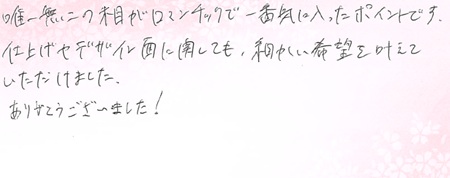 唯一無二の木目がロマンチックで一番気に入ったポイントです。
仕上げやデザイン面に関しても、細かい希望を叶えて
いただけました。
ありがとうございました!